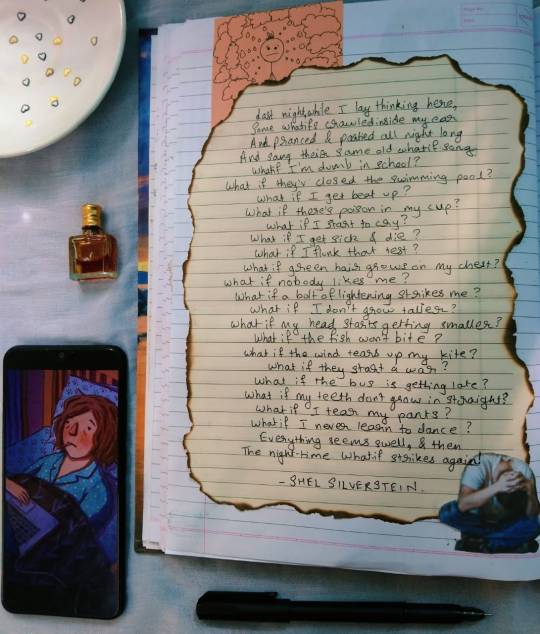 Last night, while I lay thinking here,
Some whatifs crawled inside my ear
And pranced & partied all night long
And sang their same old whatif song
Whatif I'm dumb in school?
What if they'v closed the swimming pool?
What if I get beat up?
What if there's poison in my cup?
What if I start to cry?
What if I get sick & die?
What if I flunk that test?
What if green hair grows on my chest?
What if nobody likes me?
What if a bolt of lightening strikes me?
What if I don't grow taller?
What if my head starts getting smaller?
What if the fish won't bite?
What if the wind tears up my kite?
What if they start a war?
What if the bus is getting late?
What if my teeth don't grow in straight?
What if I tear my pants?
Whatif I never learn to dance?
Everything seems swell, & then
The night-time whatif strikes again!
- SHEL SILVERSTEIN.